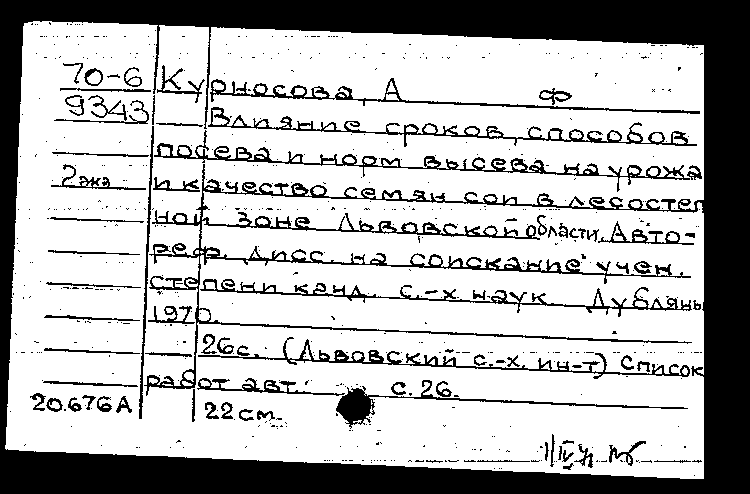 70-6 Курносова, А ф
9343 Влияние сроков, способов
посева и норм высева на урожа
2 экз и качество семян сои в лесостеп
ной зоне Львовской области. Авто-
реф. дисс. на соискание учен.
степени канд. с.-х. наук. Дубляны
1970.
26 с. (Львовский с.-х. ин-т) Список
работ авт.: с. 26.
20.676А 22 см.